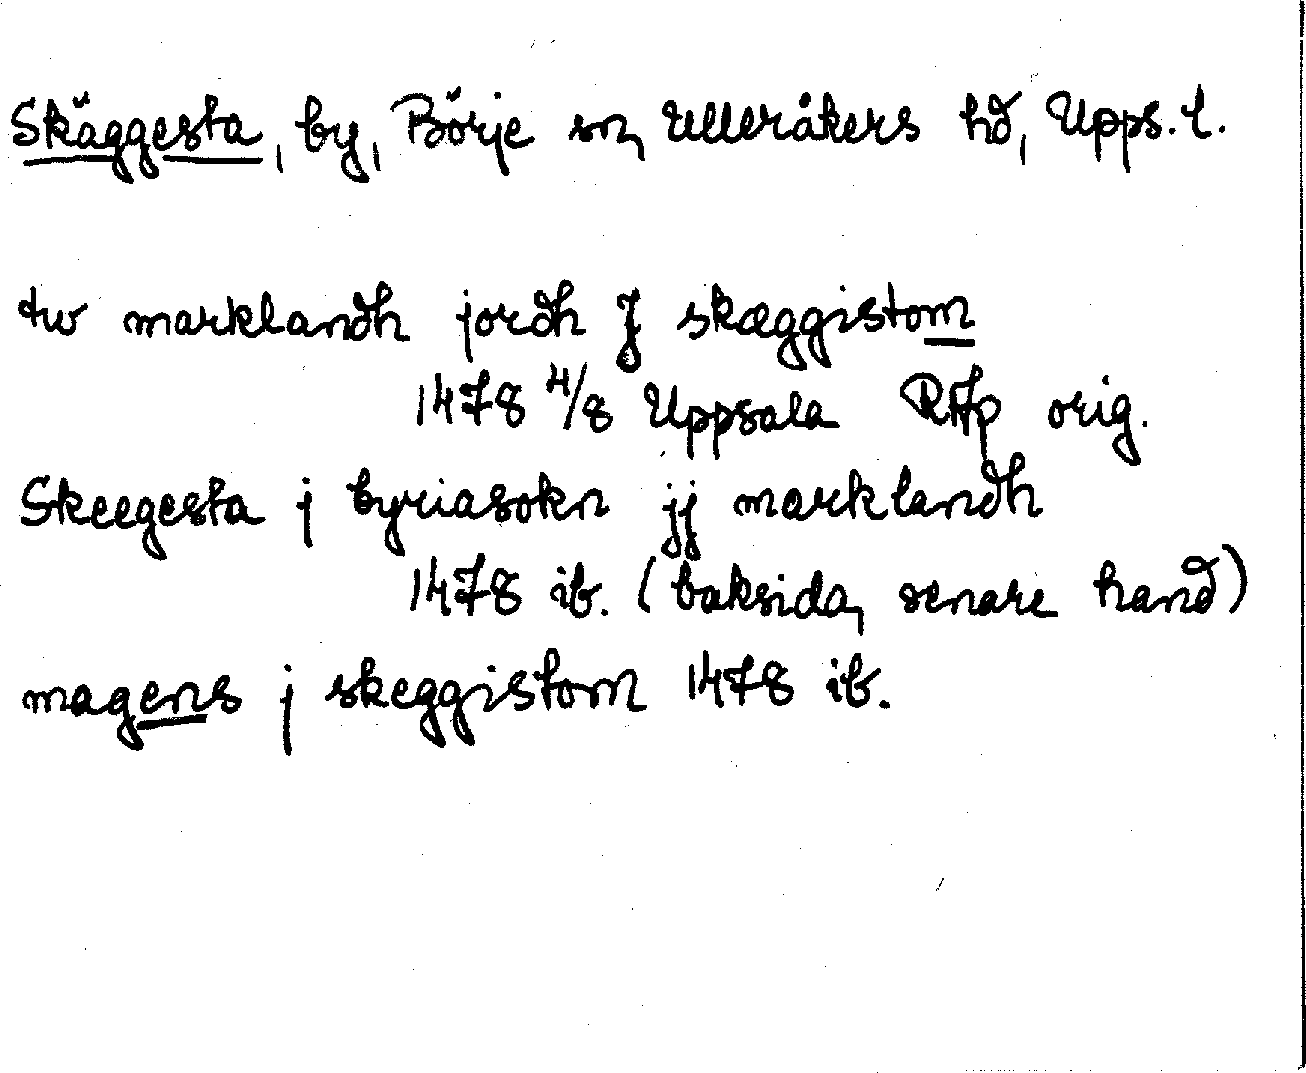 Skäggesta, by, Börje sn, Ulleråkers hd, Upps. l.
tw marklandh jordh J skæggistom
1478 4/8 Uppsala RAp orig.
Skeegesta j byriasokn jj marklandh
1478 ib. (baksida, senare hand)
magens j skeggistom 1478 ib.